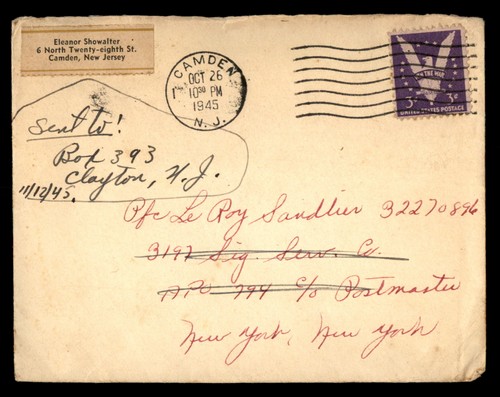 Eleanor Showalter
6 North Twenty-eighth St.
Camden, New Jersey
CAMDEN
OCT 26
10 30 PM
1945
N. J.
WIN THE WAR
3¢ 3¢
UNITED STATES POSTAGE
Sent to!
Box 393
Clayton, N.J.
11/12/45.
Pfc Le Roy Sandlier 32270896
3197 Sig. Serv. Co.
APO 794 c/o Postmaster
New York, New York